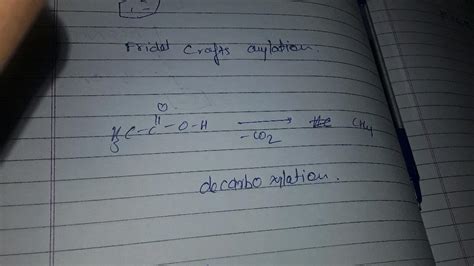 Fridal Crafts aylation.
O
H3C-C-O-H → CH4
-CO2
decarboxylation.